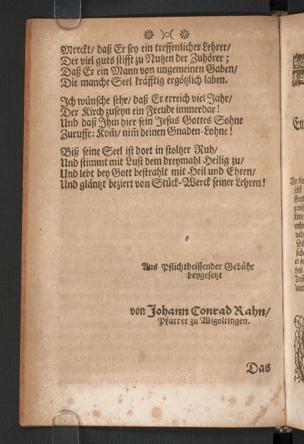 Merckt/ daß Er sey ein treffenlicher Lehrer/
Der viel guts stifft zu Nutzen der Zuhörer;
Daß Er ein Mann von ungemeinen Gaben/
Die manche Seel kräfftig ergötzlich laben.
Ich wünsche sehr/ daß Er erreich viel Jahr/
Der Kirch zuseyn ein Freude immerdar!
Und daß Ihm hier sein Jesus Gottes Sohne
Zuruffe: Kom̃/ nim̃ deinen Gnaden-Lohne!
Biß seine Seel ist dort in stoltzer Ruh/
Und stimmt mit Lust dem dreymahl-Heilig zu/
Und lebt bey Gott bestrahlt mit Heil und Ehren/
Und gläntzt beziert von Stück-Werck seiner Lehren!
Aus Pflichtheissender Gebühr
beygesetzt
von Johann Conrad Rahn/
Pfarrer zu Wigoltingen.
Das